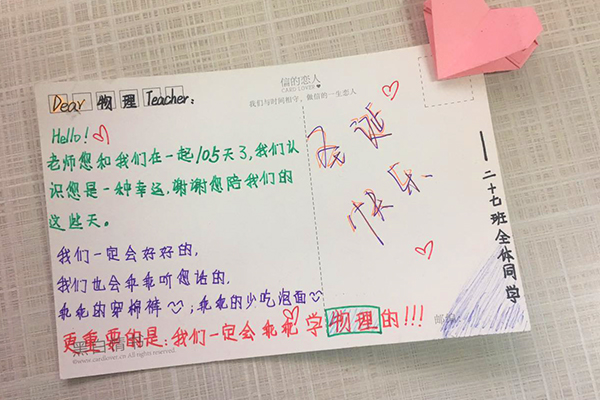 Dear 物理 Teacher:
信的恋人
CARD LOVER
我们与时间相守,做信的一生恋人
Hello!
老师您和我们在一起105天了,我们认
识您是一种幸运,谢谢您陪我们的
这些天。
我们一定会好好的,
我们也会乖乖听您话的,
乖乖的穿棉裤;乖乖的少吃泡面
更重要的是:我们一定会乖乖学物理的!!!
圣诞
快乐
——二十七班全体同学
黑白精
©www.cardlover.cn All rights reserved.
邮